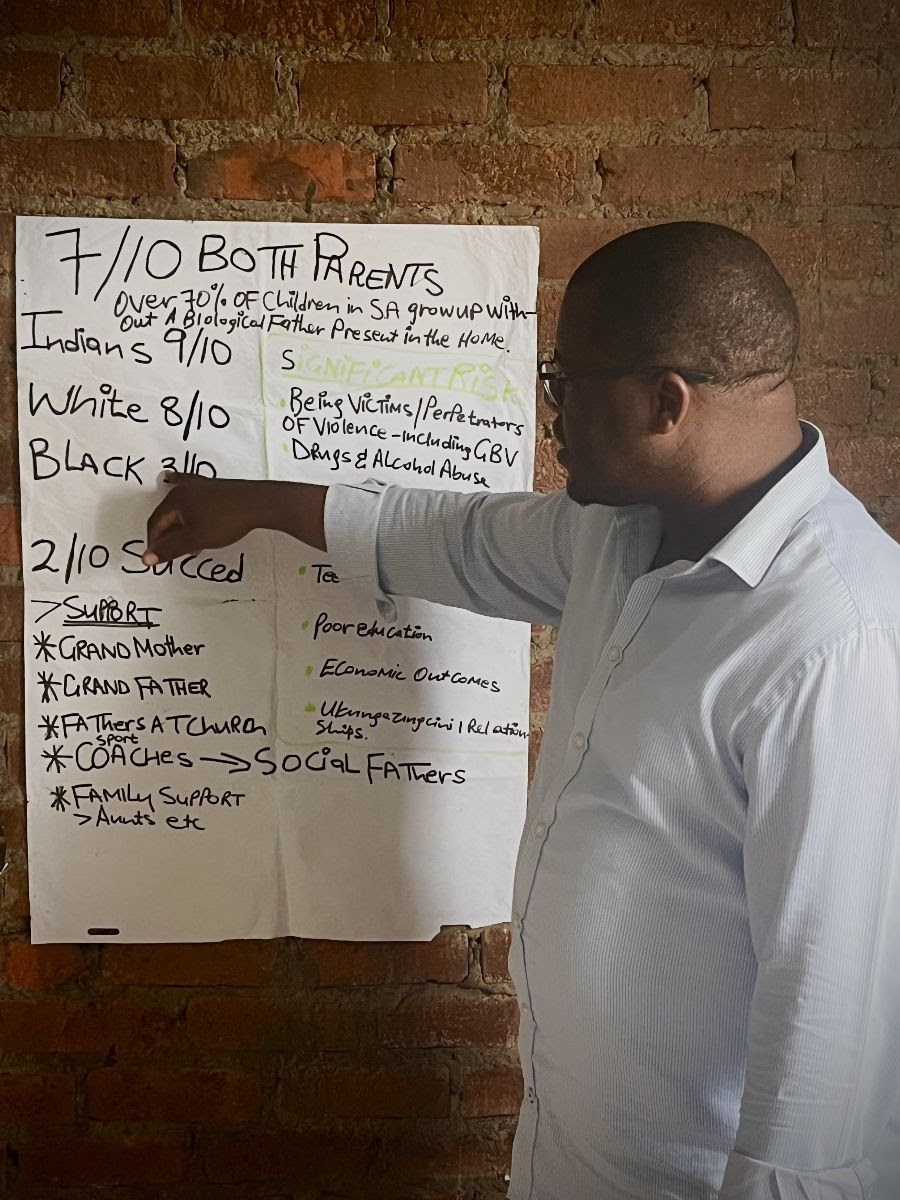 7/10 BOTH PARENTS
Over 70% OF Children in SA grow up with-
out A Biological Father Present in the HOME.
Indians 9/10
White 8/10
BLACK 3/10
2/10 Succed
> SUPPORT
* GRAND Mother
* GRAND FATHER
* FAThers AT ChURCh
sport
* COAChes → SOCiaL FAThers
* FAMily SUPPORT
> Aunts etc
SIGNIFICANT RISK
• Being VICTIMS/Perpetrators
OF Violence - including GBV
• Drugs & ALCohol Abuse
• Tee
• Poor education
• ECOnomic OutComes
Relation-
Ships.